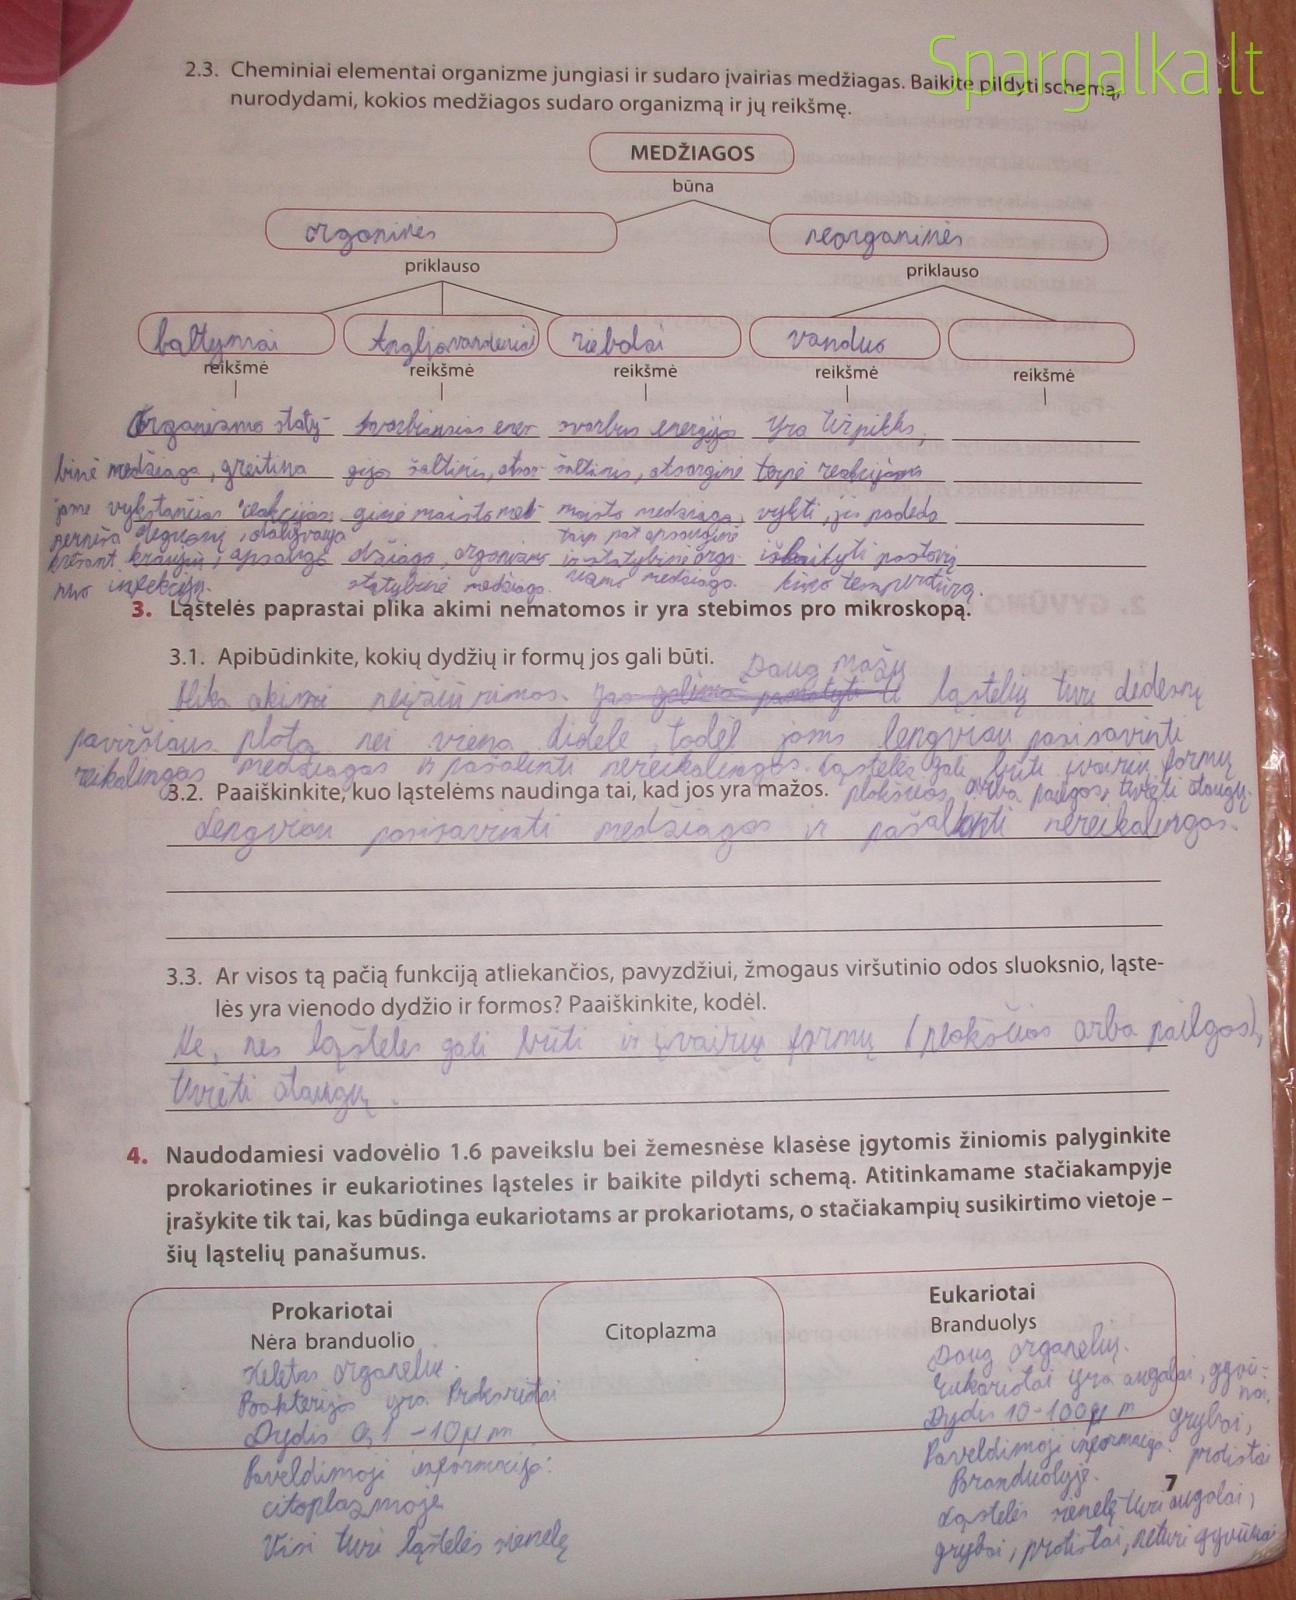 Spargalka.lt
2.3. Cheminiai elementai organizme jungiasi ir sudaro įvairias medžiagas. Baikite pildyti schemą,
nurodydami, kokios medžiagos sudaro organizmą ir jų reikšmę.
MEDŽIAGOS
būna
organinės
neorganinės
priklauso
priklauso
baltymai
Angliavandeniai
riebalai
vanduo
reikšmė
reikšmė
reikšmė
reikšmė
reikšmė
Organizmo staty-
binė medžiaga, greitina
jame vykstančias reakcijas,
perneša deguonį, dalyvauja
krešant kraujui, apsaugo
nuo infekcijų.
svarbiausias ener
gijos šaltinis, atsar-
ginė maisto med-
džiaga, organizmo
statybinė medžiaga.
svarbus energijos
šaltinis, atsarginė
maisto medžiaga,
taip pat apsauginė
ir statybinė orga-
nizmo medžiaga.
Yra tirpiklis,
terpė reakcijoms
vykti, jis padeda
išlaikyti pastovią
kūno temperatūrą.
3. Ląstelės paprastai plika akimi nematomos ir yra stebimos pro mikroskopą.
3.1. Apibūdinkite, kokių dydžių ir formų jos gali būti.
Daug mažų
Plika akimi neįžiūrimos. Jas galima pamatyti ląstelių turi didesnį
paviršiaus plotą nei viena didelė, todėl joms lengviau pasisavinti
reikalingas medžiagas ir pašalinti nereikalingas. Ląstelės gali būti įvairių formų
3.2. Paaiškinkite, kuo ląstelėms naudinga tai, kad jos yra mažos.
plokščios arba pailgos, turėti ataugų.
Lengviau pasisavinti medžiagas ir pašalinti nereikalingas.
3.3. Ar visos tą pačią funkciją atliekančios, pavyzdžiui, žmogaus viršutinio odos sluoksnio, ląste-
lės yra vienodo dydžio ir formos? Paaiškinkite, kodėl.
Ne, nes ląstelės gali būti ir įvairių formų (plokščios arba pailgos),
turėti ataugų.
4. Naudodamiesi vadovėlio 1.6 paveikslu bei žemesnėse klasėse įgytomis žiniomis palyginkite
prokariotines ir eukariotines ląsteles ir baikite pildyti schemą. Atitinkamame stačiakampyje
įrašykite tik tai, kas būdinga eukariotams ar prokariotams, o stačiakampių susikirtimo vietoje –
šių ląstelių panašumus.
Prokariotai
Nėra branduolio
Keletas organelių.
Bakterijos yra Prokariotai
Dydis 0,1 - 10 µm
Paveldimoji informacija:
citoplazmoje
Visi turi ląstelės sienelę
Citoplazma
Eukariotai
Branduolys
Daug organelių.
Eukariotai yra augalai, gyvū-
nai,
Dydis 10-100 µm grybai,
Paveldimoji informacija: protistai
Branduolyje.
7
Ląstelės sienelę turi augalai,
grybai, protistai, neturi gyvūnai